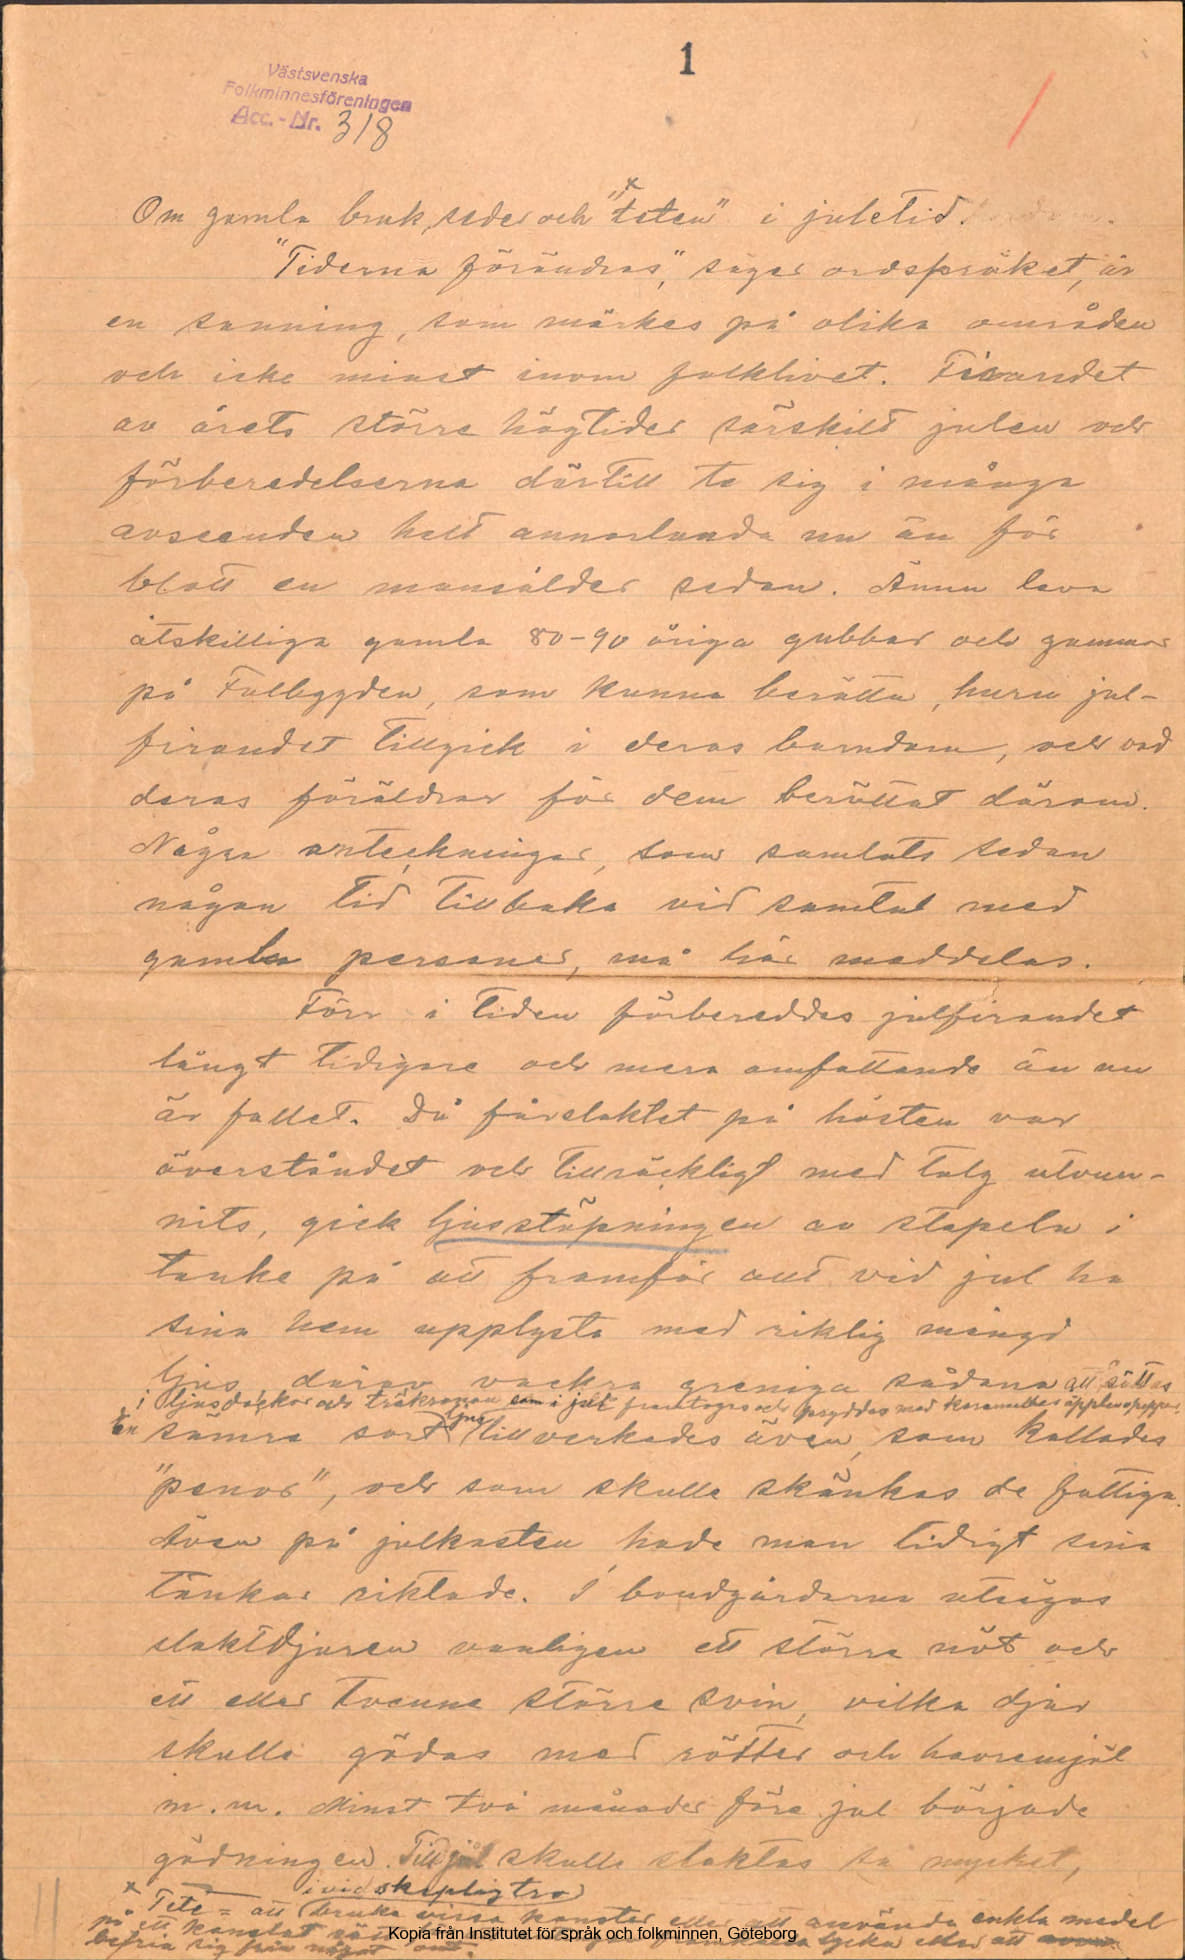 1
Västsvenska
Folkminnesföreningen
Acc.-Nr. 318
Om gamla bruk, seder och "teten"x i juletid.
"Tiderna förändras", säger ordspråket, är
en sanning, som märkes på olika områden
och icke minst inom folklivet. Firandet
av årets större högtider särskilt julen och
förberedelserna därtill te sig i många
avseenden helt annorlunda nu än för
blott en mansålder sedan. Ännu leva
åtskilliga gamla 80-90 åriga gubbar och gummor
på Falbygden, som kunna berätta, huru jul-
firandet tillgick i deras barndom, och vad
deras föräldrar för dem berättat därom.
Några anteckningar, som samlats sedan
någon tid tillbaka vid samtal med
gamla personer, må här meddelas.
Förr i tiden förbereddes julfirandet
långt tidigare och mera omfattande än nu
är fallet. Då fårslaktet på hösten var
överståndet och tillräckligt med talg utvun-
nits, gick ljusstöpningen av stapeln i
tanke på att framför allt vid jul ha
sina hem upplysta med riklig mängd
ljus, därav vackra greniga sådana att sättas
i ljusdockor och träkronor som i jul framtogos och pryddes med karameller äpplen papper
En sämre sort ljus tillverkades även, som kallades
"penor", och som skulle skänkas de fattiga.
Även på julkosten hade man tidigt sina
tankar riktade. I bondgårdarna utsågos
slaktdjuren vanligen ett större nöt och
ett eller tvenne större svin, vilka djur
skulle gödas med rötter och havremjöl
m.m. Minst två månader före jul började
gödningen. Till jul skulle slaktas så mycket,
x Tete = att i vidskeplig tro bruka vissa konster eller att använda enkla medel
på ett konstlat sätt framkalla lycka eller att
befria sig från något ont.
Kopia från Institutet för språk och folkminnen, Göteborg